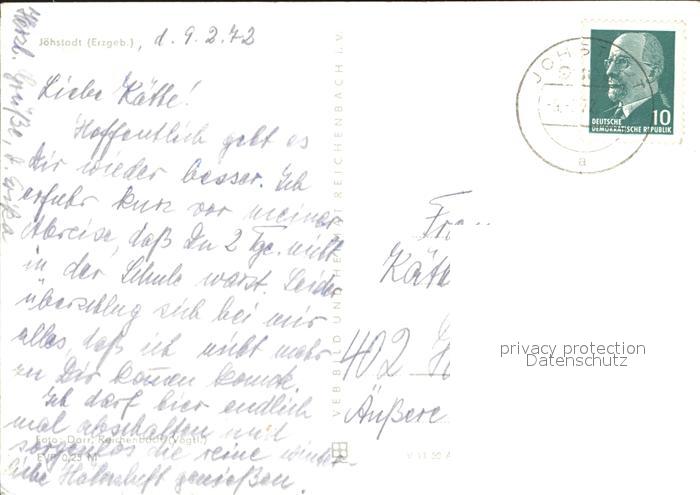 Jöhstadt (Erzgeb.) , d. 9.2.72
Liebe Kätte!
Hoffentlich geht es
Dir wieder besser. Ich
erfuhr kurz vor meiner
Abreise, daß Du 2 Tge. nicht
in der Schule warst. Leider
überschlug sich bei mir
alles, daß ich nicht mehr
zu Dir komen konnte.
Ich darf hier endlich
mal abschalten und
sorgenlos die reine winter-
liche Höhenluft genießen.
Herzl. Grüße, d.
Foto: Darr, Reichenbach (Vogtl.)
EVP 0,25 M
VEB BILD UND HEIMAT REICHENBACH i. V.
JÖHSTADT
a
10
DEUTSCHE
DEMOKRATISCHE REPUBLIK
Fra
Kätt
402 H
Äußere
V 11 50 A
privacy protection
Datenschutz